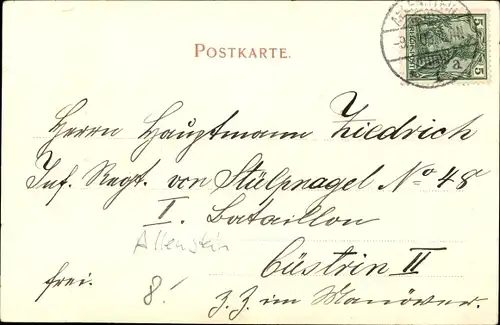 POSTKARTE.
5 5
Herrn Hauptmann Ziedrich
Inf. Regt. von Stülpnagel No 48
I. Bataillon
Allenstein
Cüstrin II
frei.
8.
Z. Z. im Manöver.